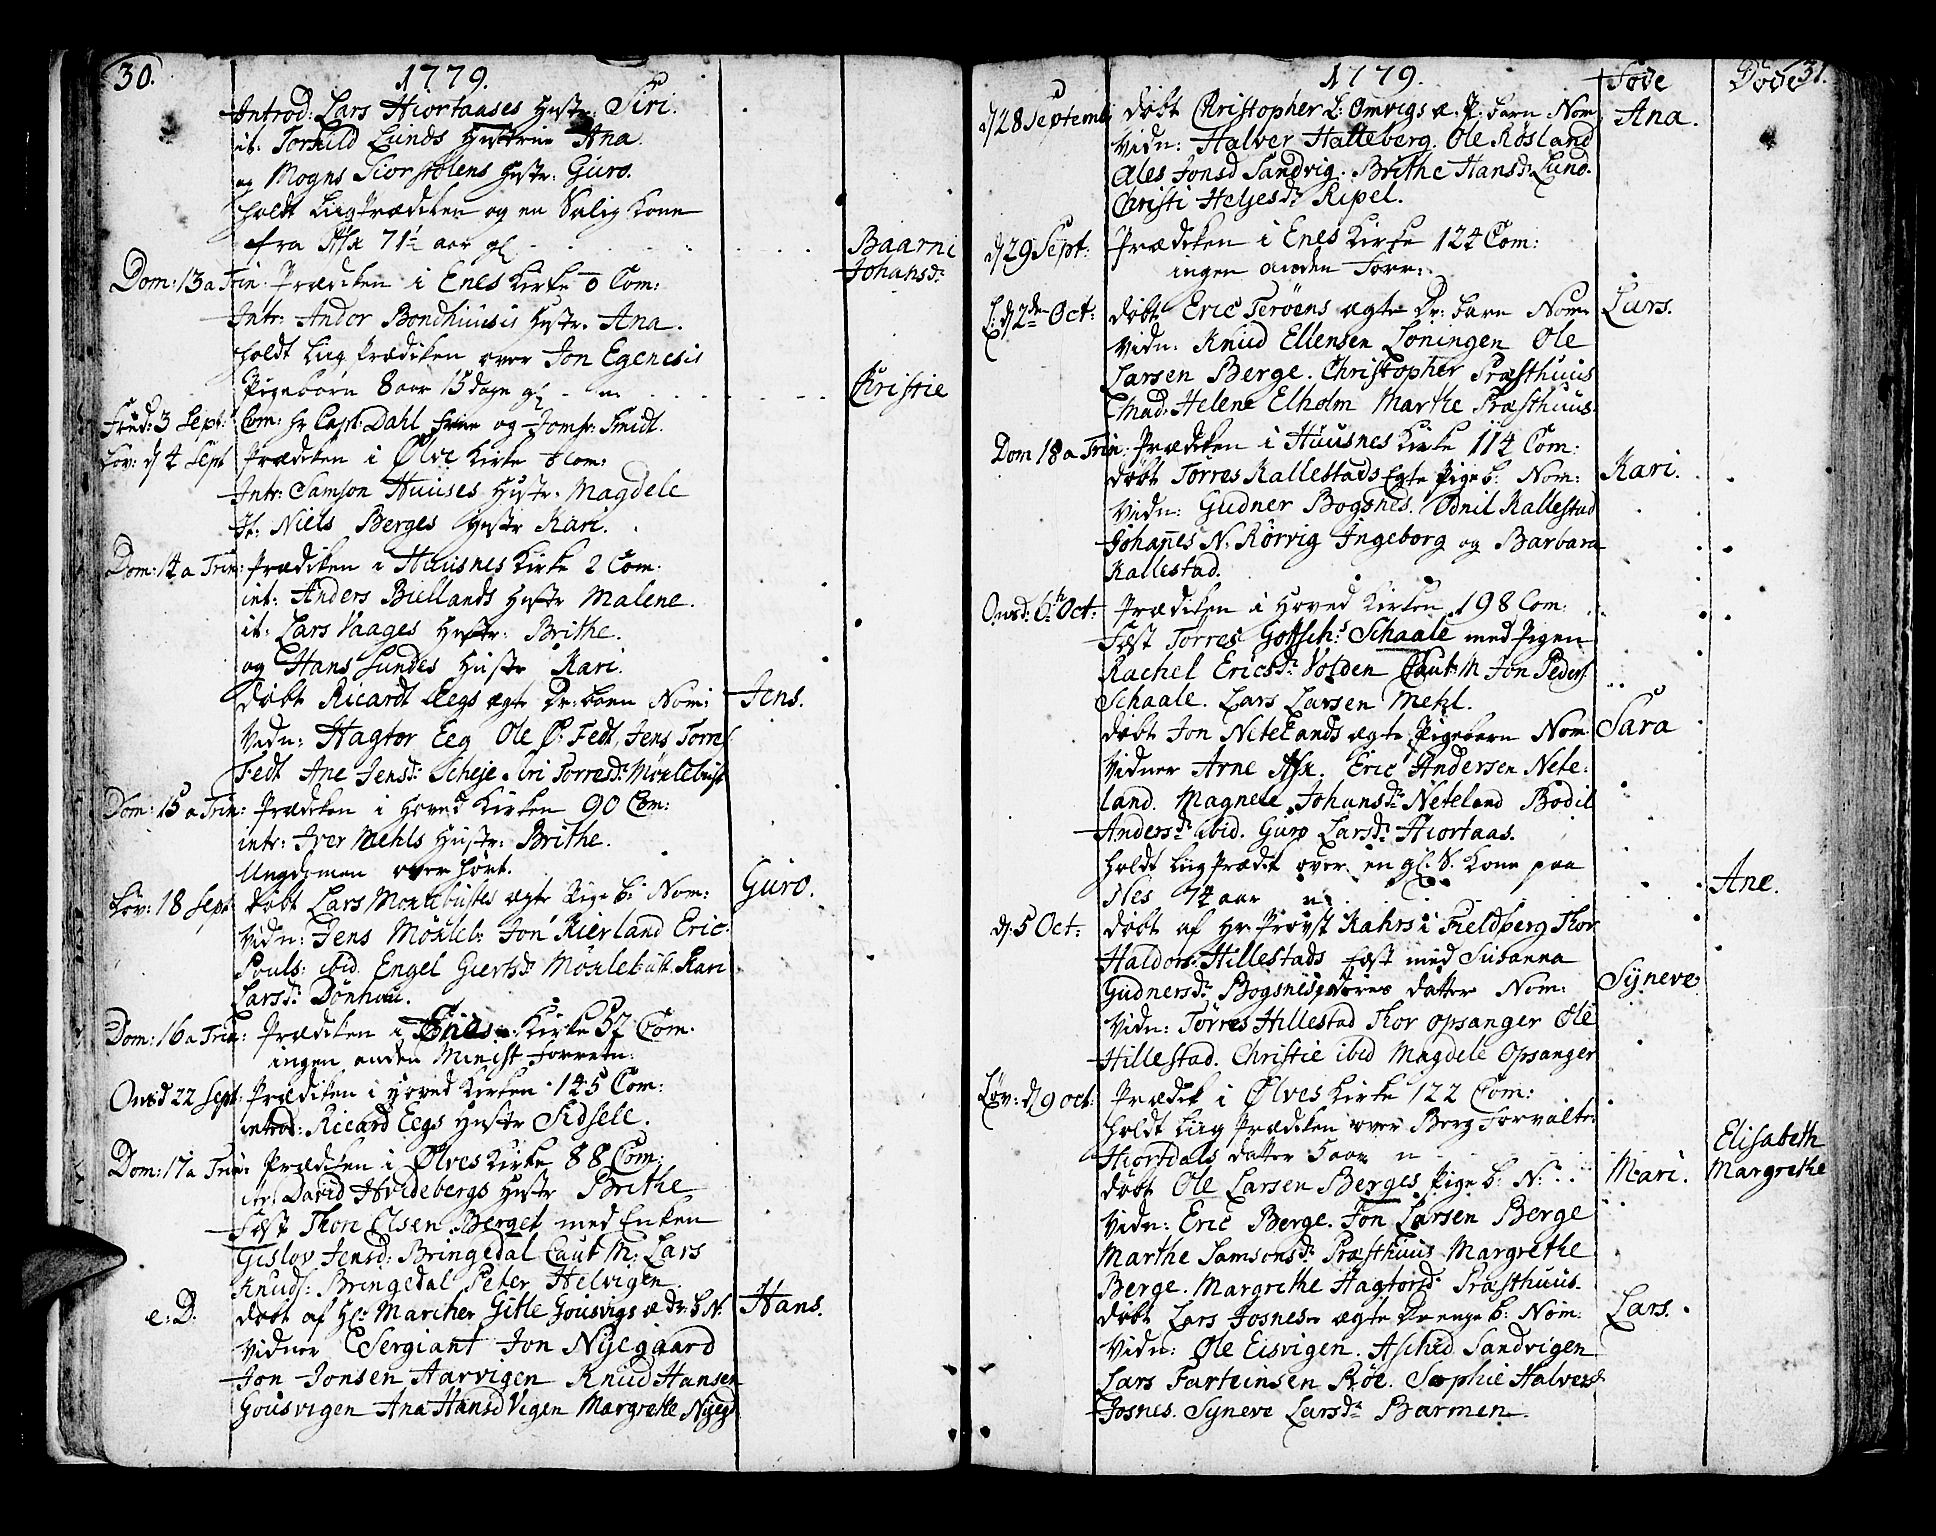 30.
1779.
Introd: Lars Hiortaases Hustr: Siri.
it: Torkild Lunds Hustrue Ana.
og Mogns Tiorstølens Hustr: Guro.
holdt Liig Prædiken og en Salig Kone
fra Asx 71½ aar gl
Baarni
Johansdr
Dom: 13 a Trin: Prædiken i Enes Kirke 0 Com:
Intr: Ander Bondhuusis Hustr. Ana.
holdt Liig Prædiken over Jon Egenesis
Pigebarn 8 aar 15 dage gl
Christie
Fred: 3 Sept: Com: Hr Capt: Dahl Frue og Jomfr: Smidt.
Løv: d 4 Sept Prædiken i Ølve Kirke 0 Com:
Intr: Samson Huuses Hustr: Magdele
It: Niels Berges Hustr Kari.
Dom: 14 a Trin: Prædiken i Huusnes Kirke 2 Com:
int: Anders Biellands Hustr Malene.
it: Lars Vaages Hustr: Brithe.
og Hans Sundes Hustr Kari.
døbt Ricardt Eegs ægte Dr: barn Nom: Jens.
Vidn: Hagtor Eeg Ole Ø: Fedt, Jens Torres
Fedt Ane Jensdr Scheje Siri Torresdr Möxlebust
Dom: 15 a Trin: Prædiken i Hoved Kirken 90 Com:
intr: Iver Mehls Hustr: Brithe.
Ungdomen overhørt.
Løv: 18 Sept døbt Lars Moxlebustes ægte Pige b: Nom: Guro.
Vidn: Jens Möxleb: Jon Kierland Eric
Pouls: ibid. Engel Giertsdr Möxlebust. Kari
Larsdr Dönhau.
Dom: 16 a Trin: Prædiken i Enes Kirke 52 Com.
ingen anden Minist Forretn:
Onsd 22 Sept: Prædiken i Hoved Kirken 145 Com:
introd: Ricard Eegs Hustr Sidsele.
Dom: 17 a Trin: Prædiken i Ølves Kirke 88 Com:
itr: David Hvidebergs Hustr Brithe
Fæst Thore Olsen Berget med Enken
Gislov Jensd: Bringedal Caut M: Lars
Knuds: Bringedal Peter Helvigen
e: D. døbt af Hr: Marcher Gitle Gousvigs æ dr: b N: Hans.
Vidner Sergiant Jon Nyegaard
Jon Jonsen Aarvigen Knud Hansen
Gousvigen Ana Hansd Vigen Margrethe Nyeg
1779.
Føde
Døde 31.
d 28 Septemb: døbt Christopher L: Omvigs æ. P: barn Nom Ana.
Vidn: Halver Halleberg. Ole Røsland
Ales Jonsd Sandvig. Brithe Hansdr Lund.
Christi Heljesdr Ripel.
d 29 Sept: Prædiken i Enes Kirke 124 Com:
ingen anden Forr:
L: d 2den Oct: døbt Eric Terøens ægte Dr: barn Nom: Lars.
Vidn: Knud Ellensen Loningen Ole
Larsen Berge. Christopher Præsthuus
Mad: Helene Elholm Marthe Præsthuus.
Dom 18 a Trin: Prædiken i Huusnes Kirke 114 Com:
døbt Torres Kallestads Egte Pige b: Nom: Kari.
Vidn: Gudner Bogsnes. Odnil Kallestad
Johanes N: Rørvig Ingeborg og Barbara
Kallestad.
Onsd: 6th Oct: Prædiken i Hoved Kirken 198 Com:
Fæst Torres Gottsch: Schaale med Pigen
Rachel Ericsdr Volden Caut M Jon Peders
Schaale. Lars Larsen Mehl.
døbt Jon Netelands ægte Pigebarn Nom Sara
Vidner Arne Asx. Eric Andersen Nete:
land. Magnele Johansdr Neteland Bodil
Andersdr ibid. Guro Larsdr Hiortaas.
holdt Liig Prædik over en gl. S. Kone paa
Nes 74 aar
Ane.
d. 5 Oct: døbt af Hr: Provst Rahrs i Fieldberg Thor
Haldors: Hillestads fæst med Susanna
Gudnersdr Bogsnes datter Nom: Syneve
Vidn: Tørres Hillestad Thor Opsanger Ole
Hillestad. Christie ibid Magdele Opsanger
Løv: d 9 Oct: Prædik i Ølves Kirke 122 Com:
holdt Liig Prædiken over Berg Forvalter
Hiortdals datter 5 aar
Elisabeth
Margrethe
døbt Ole Larsen Berges Pige b: N: Mari.
Vidn: Eric Berge. Jon Larsen Berge
Marthe Samsonsdr Præsthuus Margrethe
Berge. Margrethe Hagtorsdr Præsthuus.
døbt Lars Josnes ægte Drenge b: Nom: Lars.
Vidn: Ole Eisvigen. Aschild Sandvigen
Lars Farteinsen Röe. Sophie Halversd
Josnes. Syneve Larsdr Barmen.